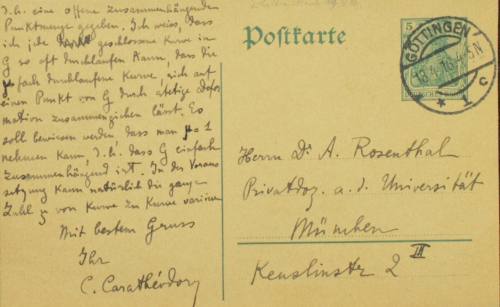 d.h. eine offene zusammenhängenden
Punktmenge gegeben. Ich weiss, dass
ich jede geschlossene Kurve in
G so oft durchlaufen kann, dass die
μ fach durchlaufene Kurve, sich auf
einen Punkt von G durch stetige Defor-
mation zusammenziehen lässt. Es
soll bewiesen werden dass man μ = 1
nehmen kann, d.h. dass G einfach
zusammenhängend ist. In der Voraus-
setzung kann natürlich die ganze
Zahl μ von Kurve zu Kurve variieren
Mit bestem Gruss
Ihr
C. Carathéodory
Postkarte
5
GÖTTINGEN
1
c
Herrn Dr A. Rosenthal
Privatdoz. a. d. Universität
München
III
2